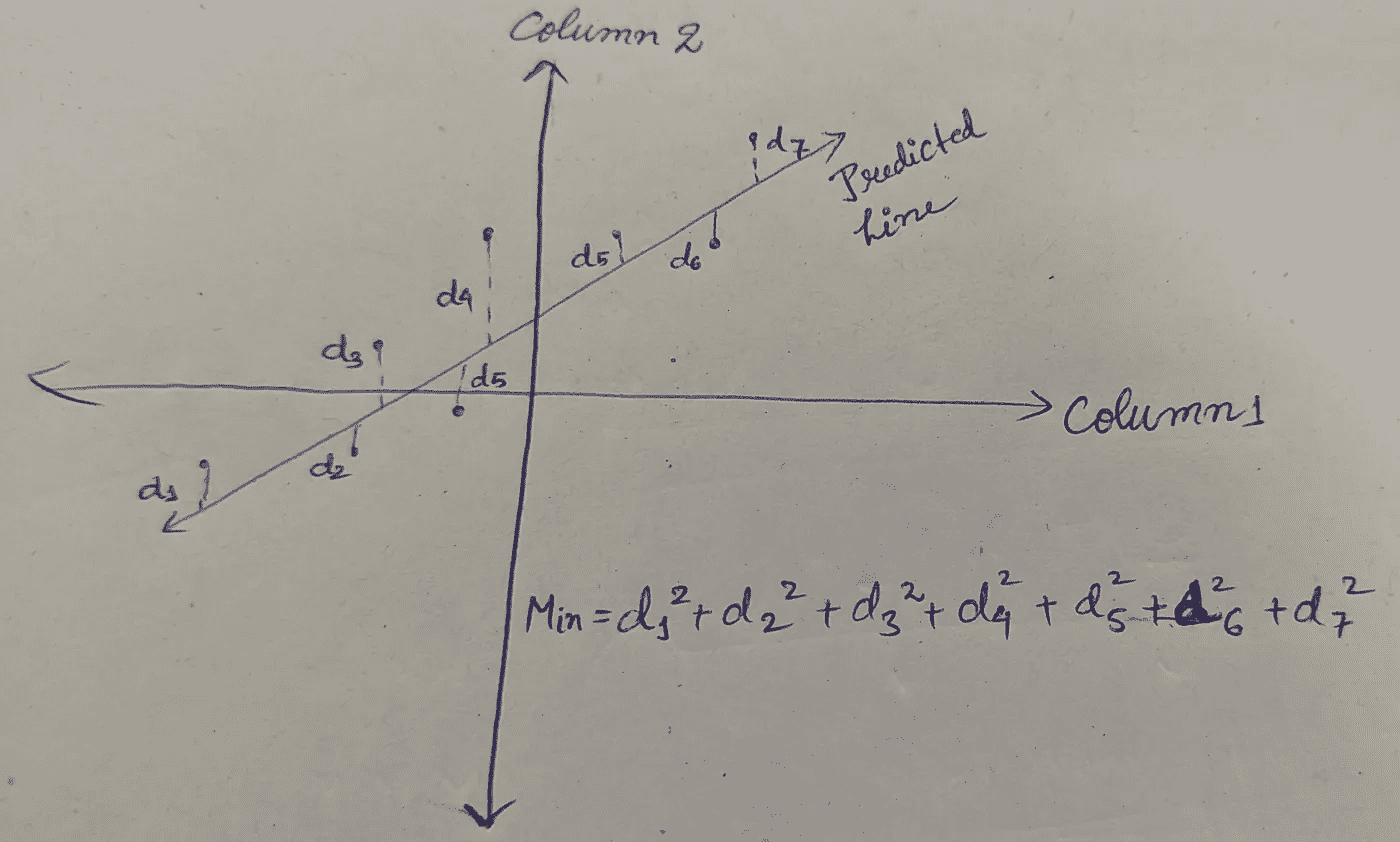 Column 2
d7
Predicted
Line
d5
d6
d4
d3
d5
Column 1
d2
d1
Min = d1² + d2² + d3² + d4² + d5² + d6² + d7²